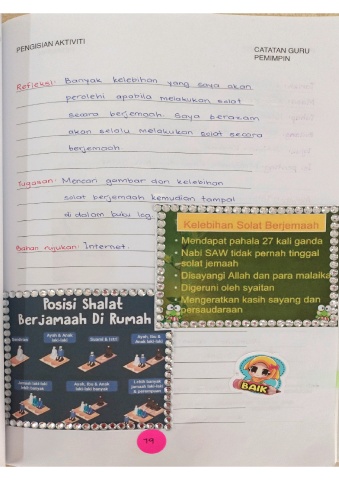 PENGISIAN AKTIVITI
CATATAN GURU
PEMIMPIN
Refleksi: Banyak kelebihan yang saya akan
perolehi apabila melakukan solat
secara berjemaah. Saya berazam
akan selalu melakukan solat secara
berjemaah
Tugasan: Mencari gambar dan kelebihan
solat berjemaah kemudian tampal
di dalam buku log.
Bahan rujukan: Internet.
Kelebihan Solat Berjemaah
• Mendapat pahala 27 kali ganda
• Nabi SAW tidak pernah tinggal
solat jemaah
• Disayangi Allah dan para malaika
• Digeruni oleh syaitan
• Mengeratkan kasih sayang dan
persaudaraan
Posisi Shalat
Berjamaah Di Rumah
Ayah & Anak
laki-laki
Suami & Istri
Ayah, Ibu &
Anak laki-laki
Jamaah laki-laki
lebih banyak
Ayah, Ibu & Anak
laki-laki banyak
Lebih banyak
jamaah laki-laki
& perempuan
BAIK
79